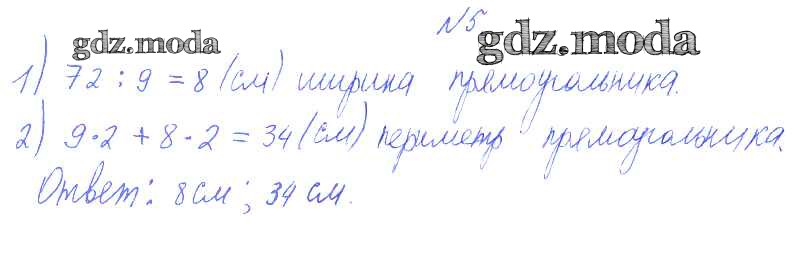 №5
gdz.moda gdz.moda
1) 72 : 9 = 8 (см) ширина прямоугольника.
2) 9·2 + 8·2 = 34 (см) периметр прямоугольника.
Ответ: 8 см; 34 см.